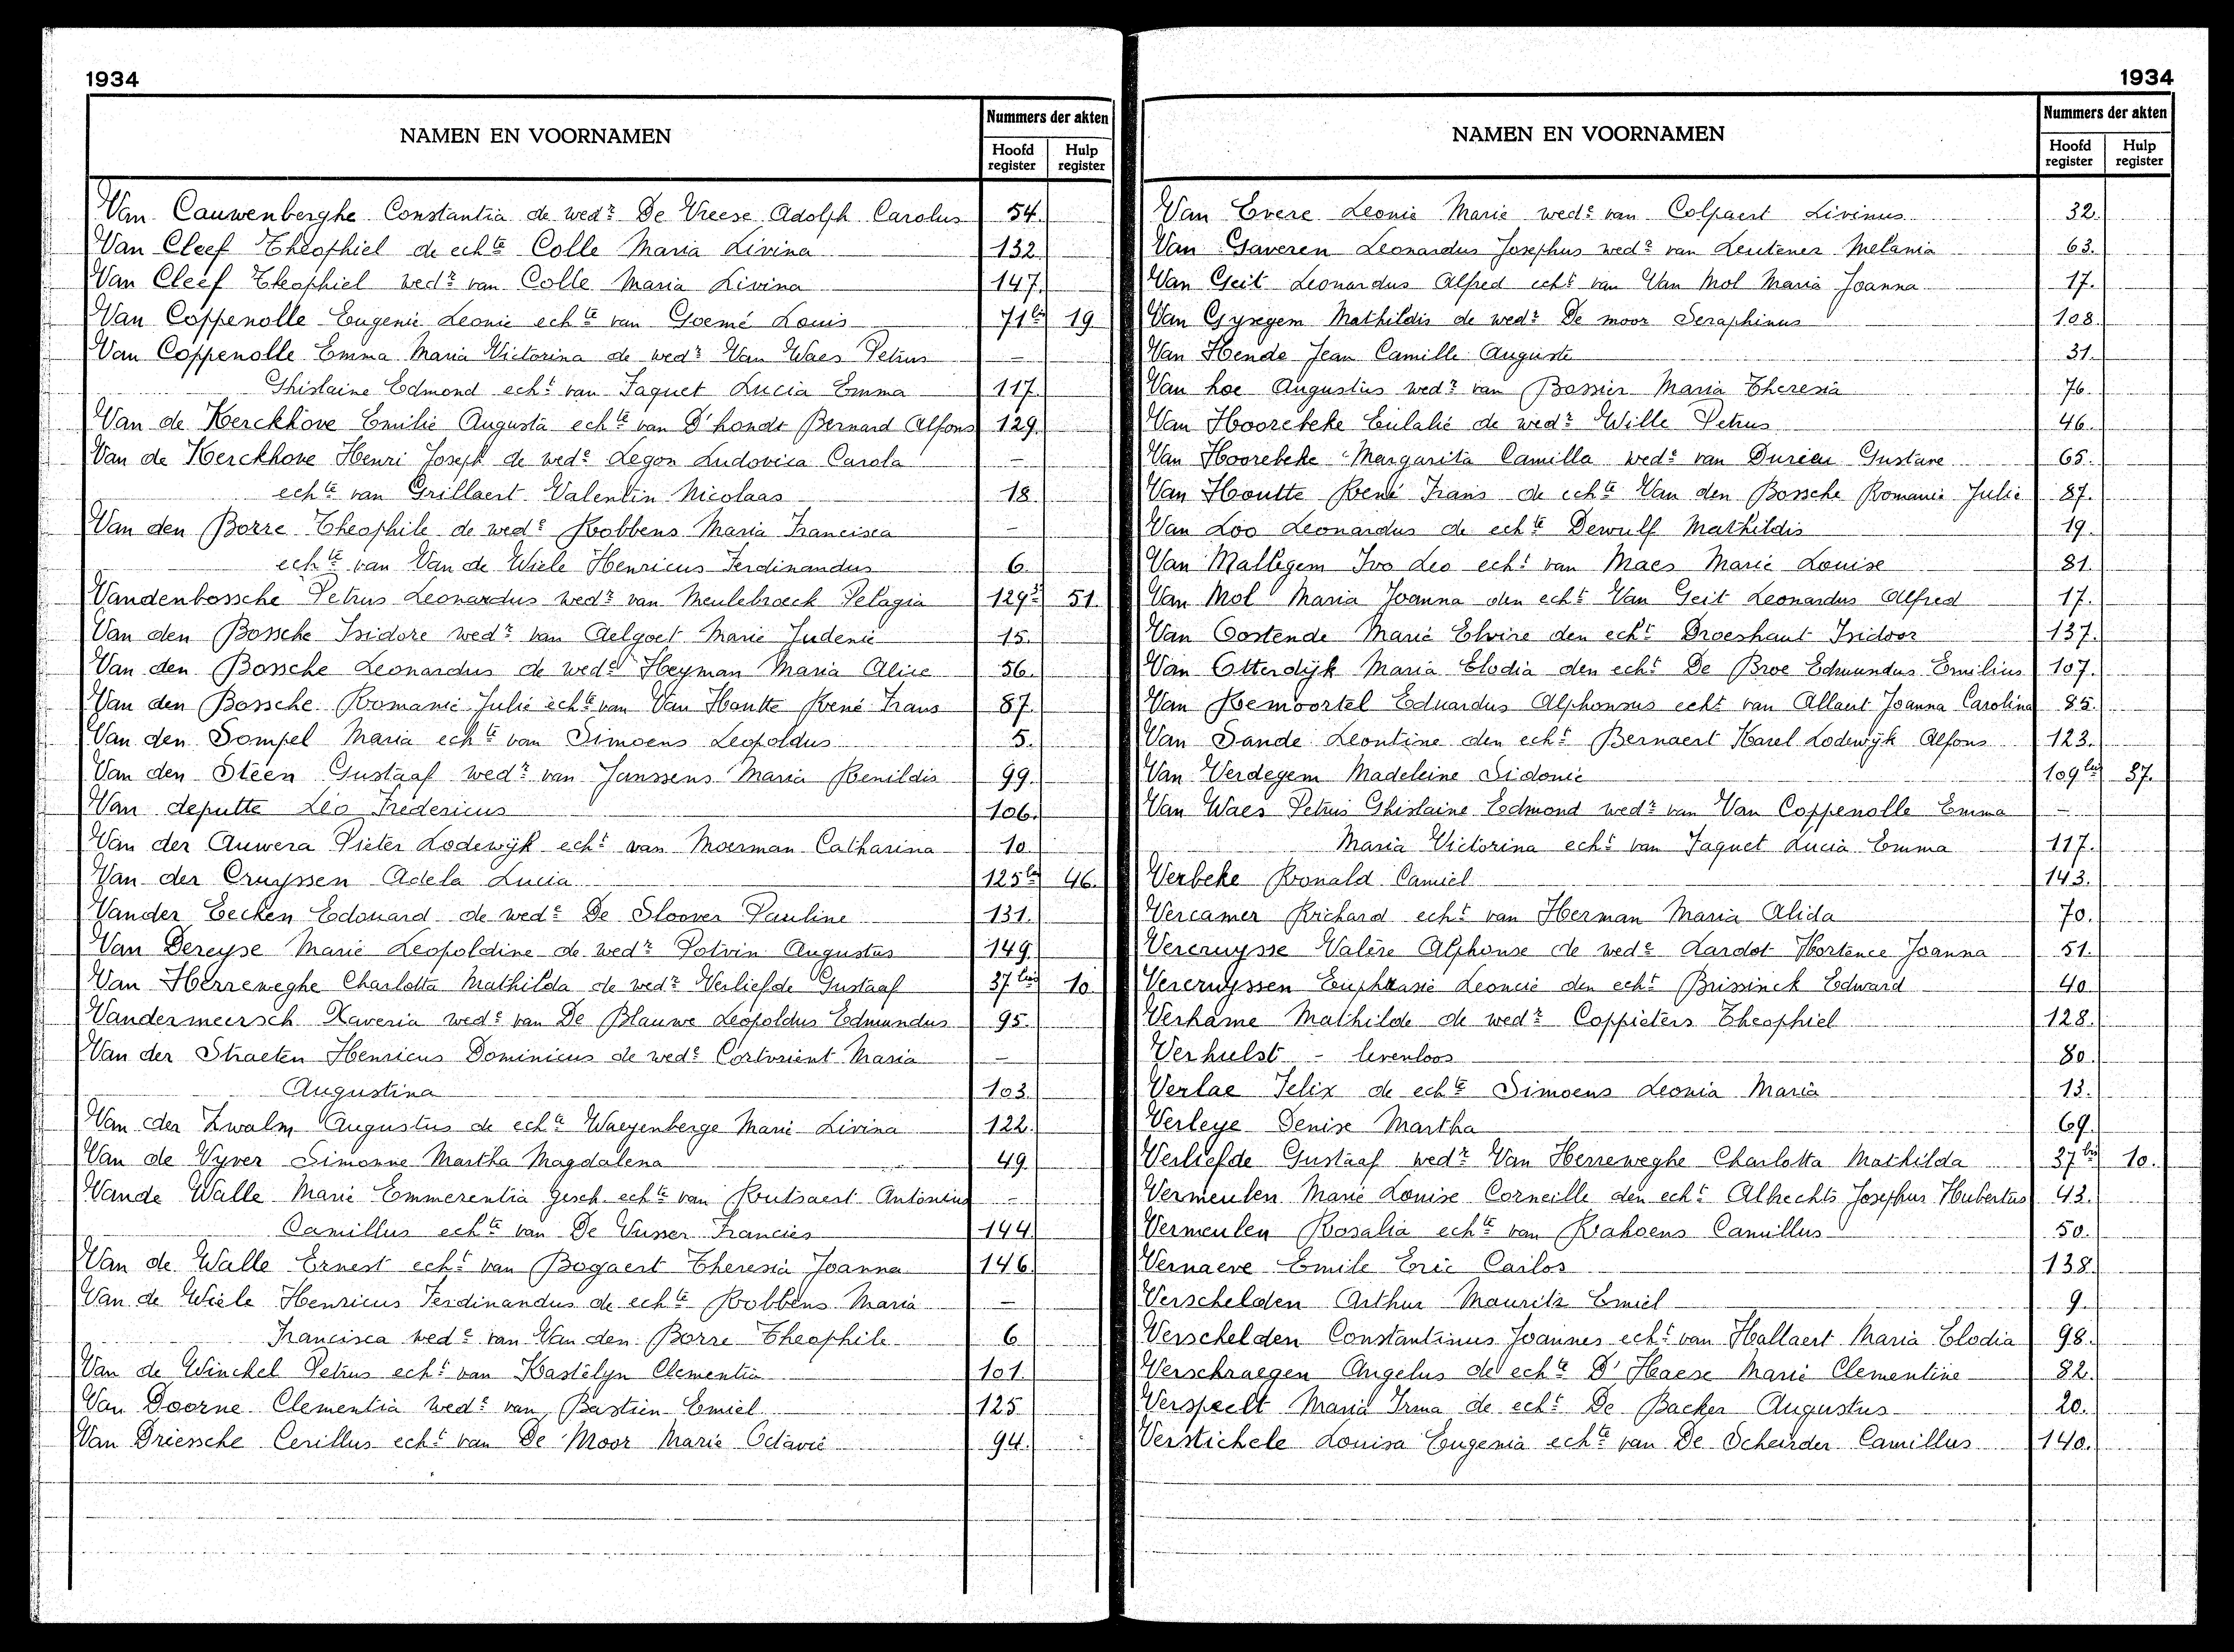 1934
NAMEN EN VOORNAMEN
Nummers der akten
Hoofd register
Hulp register
Van Cauwenberghe Constantia de wedr De Vreese Adolph Carolus 54.
Van Cleef Theophiel de echte Colle Maria Livina 132.
Van Cleef Theophiel wedr van Colle Maria Livina 147.
Van Coppenolle Eugenie Leonie echte van Goemé Louis 71bis 19
Van Coppenolle Emma Maria Victorina de wedr Van Waes Petrus –
Ghislaine Edmond echt van Jaquet Lucia Emma 117.
Van de Kerckhove Emilie Augusta echte van D'hondt Bernard Alfons 129.
Van de Kerckhove Henri Joseph de wede Legon Ludovica Carola –
echte van Grillaert Valentin Nicolaas 18.
Van den Borre Theophile de wede Robbens Maria Francisca –
echte van Van de Wiele Henricus Ferdinandus 6.
Vandenbossche Petrus Leonardus wedr van Meulebroeck Pelagia 51.
Van den Bossche Isidore wedr van Aelgoet Marie Judenie 15.
Van den Bossche Leonardus de wede Heyman Maria Alice 56.
Van den Bossche Romanie Julie echte van Van Houtte René Frans 87.
Van den Dompel Maria echte van Simoens Leopoldus 5.
Van den Steen Gustaaf wedr van Janssens Maria Renildis 99.
Van deputte Leo Fredericus 106.
Van der Auwera Pieter Lodewijk echt van Moerman Catharina 10
Van der Cruyssen Adela Lucia 125bis 46.
Vander Eecken Edouard de wede De Sloover Pauline 131.
Van Dereyse Marie Leopoldine de wedr Potvin Augustus 149.
Van Herreweghe Charlotta Mathilda de wedr Verliefde Gustaaf 37bis 10
Vandermeersch Xaveria wede van De Blauwe Leopoldus Edmundus 95.
Van der Straeten Henricus Dominicus de wede Cortvrient Maria –
Augustina 103.
Van der Zwalm Augustus de echte Waeyenberge Marie Livina 122.
Van de Vyver Simonne Martha Magdalena 49.
Vande Walle Marie Emmerentia gesch. echte van Rutsaert Antonius –
Camillus echte van De Vusser Francies 144.
Van de Walle Ernest echt van Bogaert Theresia Joanna 146.
Van de Wiele Henricus Ferdinandus de echte Robbens Maria –
Francisca wede van Van den Borre Theophile 6
Van de Winckel Petrus echt van Kastelyn Clementia 101.
Van Doorne Clementia wede van Bastien Emiel 125
Van Driessche Cerillus echt van De Moor Marie Octavie 94.
1934
NAMEN EN VOORNAMEN
Nummers der akten
Hoofd register
Hulp register
Van Evere Leonie Marie wede van Colpaert Livinus 32.
Van Gaveren Leonardus Josephus wedr van Leutener Melania 63.
Van Geit Leonardus Alfred echt van Van Mol Maria Joanna 17.
Van Gysegem Mathildis de wedr De moor Seraphinus 108.
Van Hende Jean Camille Auguste 31.
Van hoe Augustus wedr van Bossier Maria Theresia 76.
Van Hoorebeke Eulalie de wedr Wille Petrus 46.
Van Hoorebeke Margarita Camilla wede van Durieu Gustave 65.
Van Houtte René Frans de echte Van den Bossche Romanie Julie 87.
Van Loo Leonardus de echte Dewulf Mathildis 19.
Van Mallegem Ivo Leo echt van Maes Marie Louise 81.
Van Mol Maria Joanna den echt Van Geit Leonardus Alfred 17.
Van Oostende Marie Elvire den echt Droeshaut Isidoor 137.
Van Otterdijk Maria Elodia den echt De Broe Edmundus Emilius 107.
Van Remoortel Eduardus Alphonsus echt van Allaut Joanna Carolina 85.
Van Sande Leontine den echt Bernaert Karel Lodewijk Alfons 123.
Van Verdegem Madeleine Sidonie 109bis 37.
Van Waes Petrus Ghislaine Edmond wedr van Van Coppenolle Emma –
Maria Victorina echt van Jaquet Lucia Emma 117.
Verbeke Ronald Camiel 143.
Vercamer Richard echt van Herman Maria Alida 70.
Vercruysse Valère Alphonse de wede Lardot Hortence Joanna 51.
Vercruyssen Euphrasie Leoncie den echt Brissinck Edward 40.
Verhame Mathilde de wedr Coppieters Theophiel 128.
Verhulst - levenloos 80.
Verlae Felix de echte Simoens Leonia Maria 13.
Verleye Denise Martha 69.
Verliefde Gustaaf wedr Van Herreweghe Charlotta Mathilda 37bis 10.
Vermeulen Marie Louise Corneille den echt Albrechts Josephus Hubertus 43.
Vermeulen Rosalia echte van Rahoens Camillus 50.
Vernaeve Emile Eric Carlos 138.
Verschelden Arthur Mauritz Emiel 9.
Verschelden Constantinus Joannes echt van Hallaert Maria Elodia 98.
Verschraegen Angelus de echte D'Haese Marie Clementine 82.
Verspeelt Maria Irma de echt De Backer Augustus 20.
Verstichele Louisa Eugenia echte van De Scheirder Camillus 140.